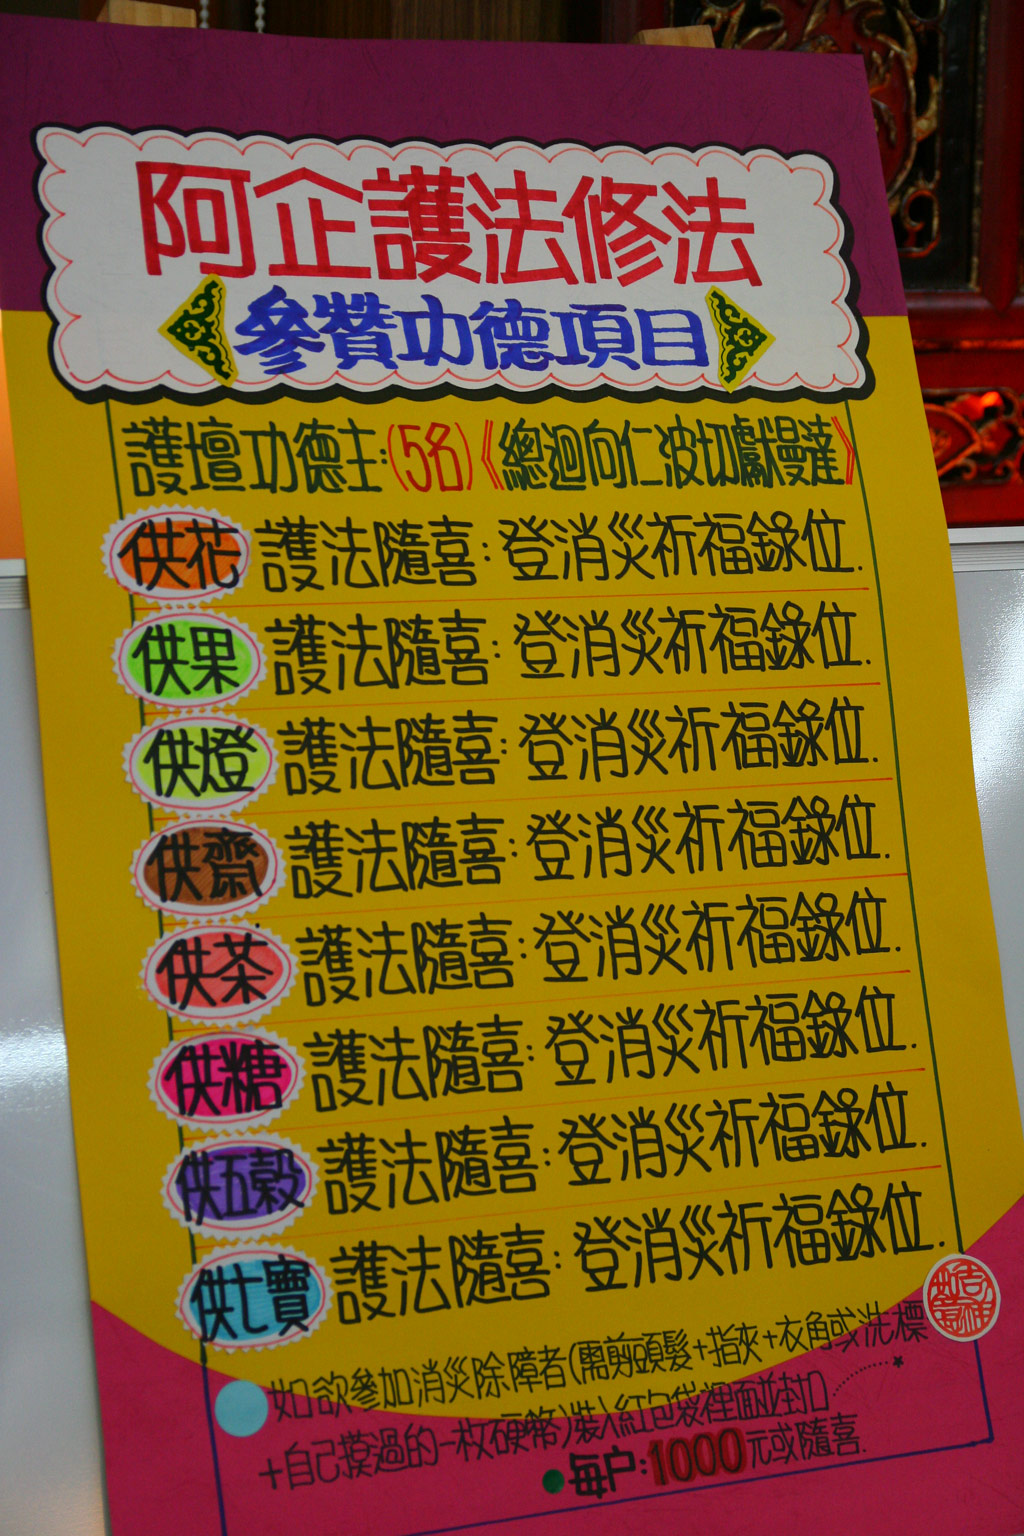 阿企護法修法
參贊功德項目
護壇功德主:(5名)《總迴向仁波切獻曼達》
供花 護法隨喜:登消災祈福錄位.
供果 護法隨喜:登消災祈福錄位.
供燈 護法隨喜:登消災祈福錄位.
供齋 護法隨喜:登消災祈福錄位.
供茶 護法隨喜:登消災祈福錄位.
供糖 護法隨喜:登消災祈福錄位.
供五穀 護法隨喜:登消災祈福錄位.
供七寶 護法隨喜:登消災祈福錄位.
如欲參加消災除障者(需剪頭髮+指夾+衣角或洗標
+自己摸過的一枚硬幣)裝入紅包袋裡面並封口
每户:1000元或隨喜.